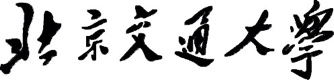 北京交通大學